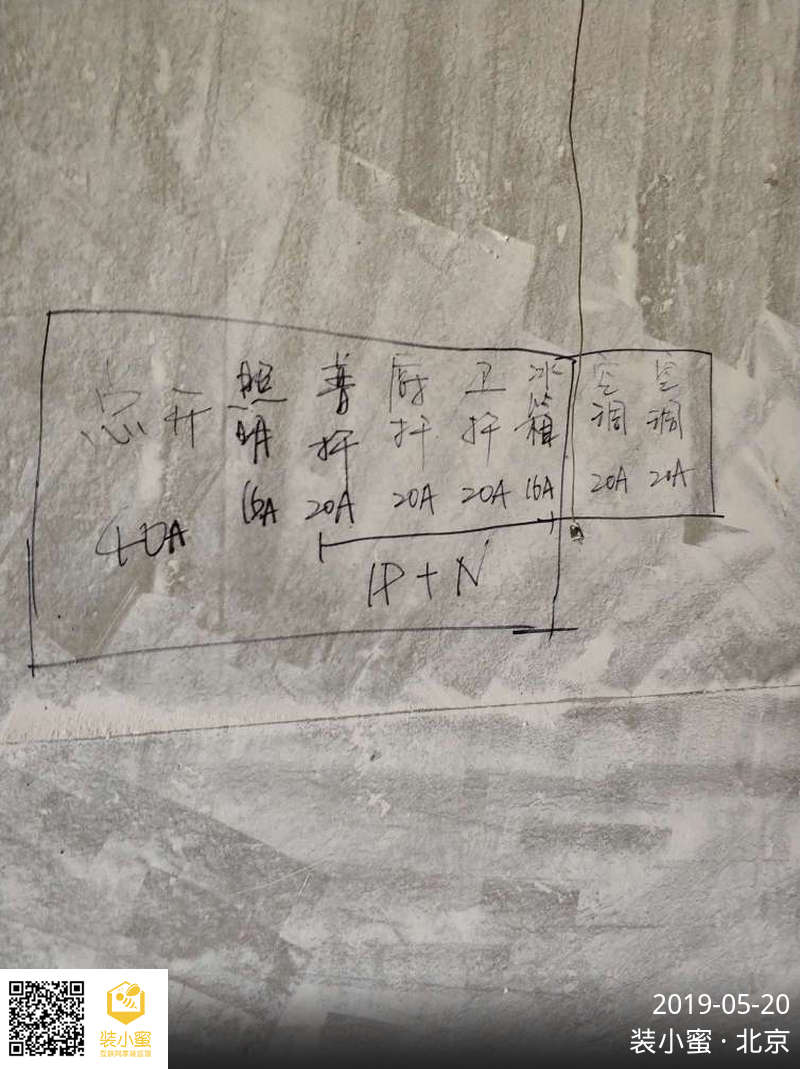 总开 照明 普插 厨插 卫插 冰箱 空调 空调
40A 16A 20A 20A 20A 16A 20A 20A
1P+N
2019-05-20
装小蜜·北京
装小蜜